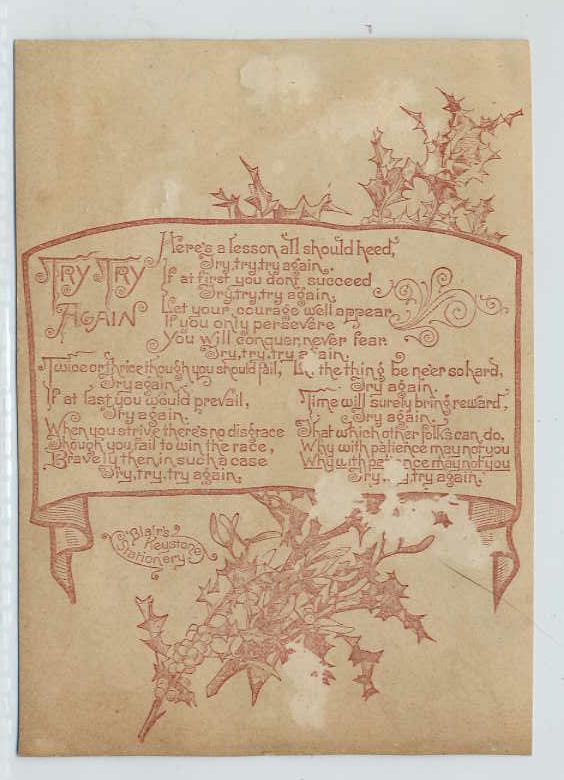 Try Try
Again
Here's a lesson all should heed,
Try, try, try again.
If at first you dont succeed
Try, try, try again,
Let your courage well appear
If you only persevere
You will conquer, never fear.
Try, try, try again.
Twice or thrice though you should fail,
Try again.
If at last you would prevail,
Try again.
When you strive there's no disgrace
Though you fail to win the race,
Bravely then in such a case
Try, try, try again,
the thing be ne'er so hard,
Try again.
Time will surely bring reward,
Try again.
That which other folks can do,
Why with patience may not you
Why with patience may not you
Try, try again.
Blair's
Keystone
Stationery